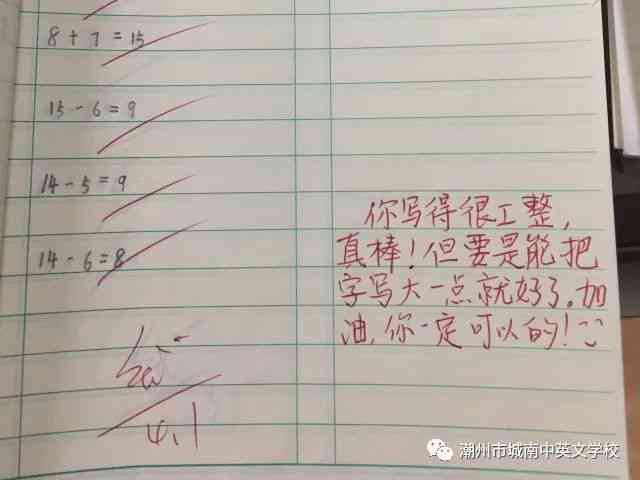 8+7=15
15-6=9
14-5=9
14-6=8
你写得很工整,
真棒!但要是能把
字写大一点就好了。加
油,你一定可以的!
4,1
潮州市城南中英文学校